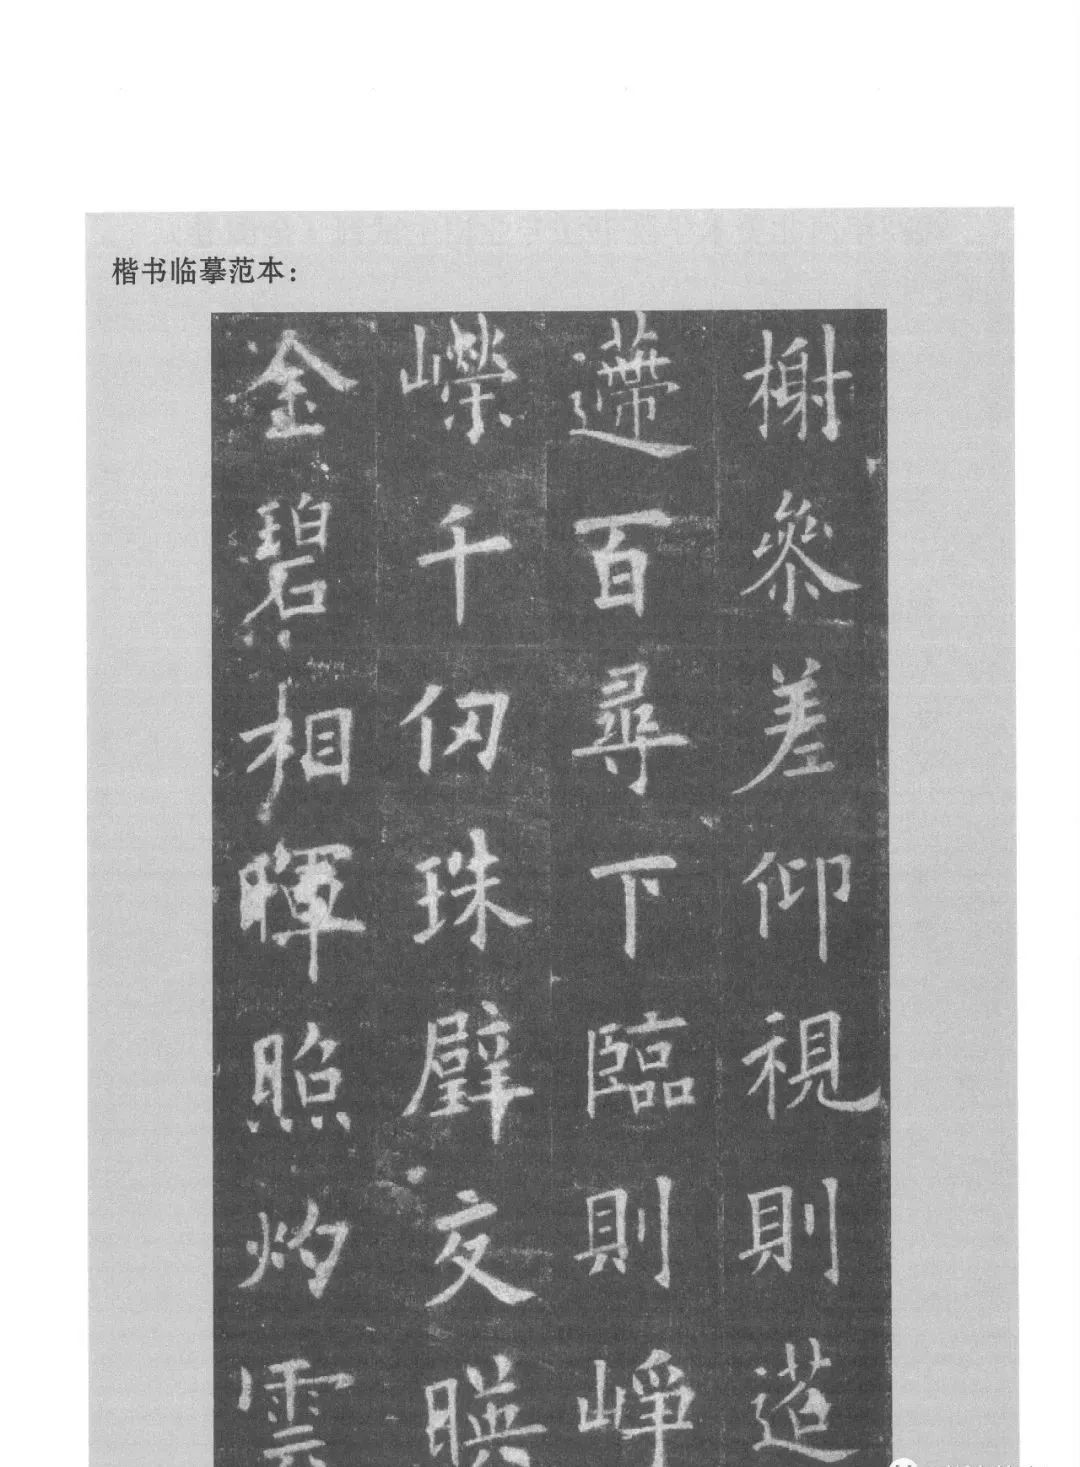 楷书临摹范本：
榭參差仰視則迢
遰百尋下臨則崢
嶸千仞珠壁交暎
金碧相暉照灼雲